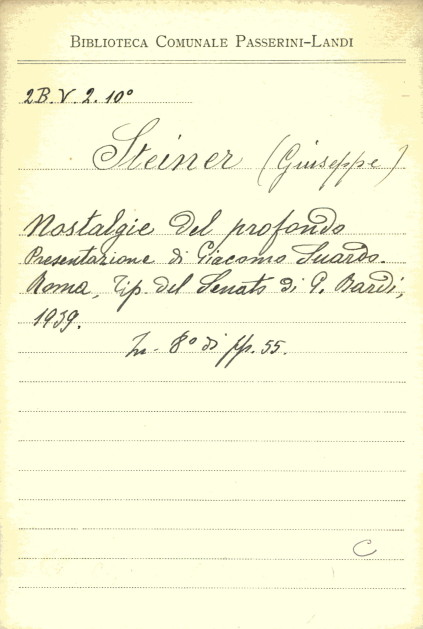 Biblioteca Comunale Passerini-Landi
2B.V.2.10°
Steiner (Giuseppe)
Nostalgie del profondo
Presentazione di Giacomo Suardo.
Roma, Tip. del Senato di G. Bardi,
1939.
In-8° di pp. 55.
C